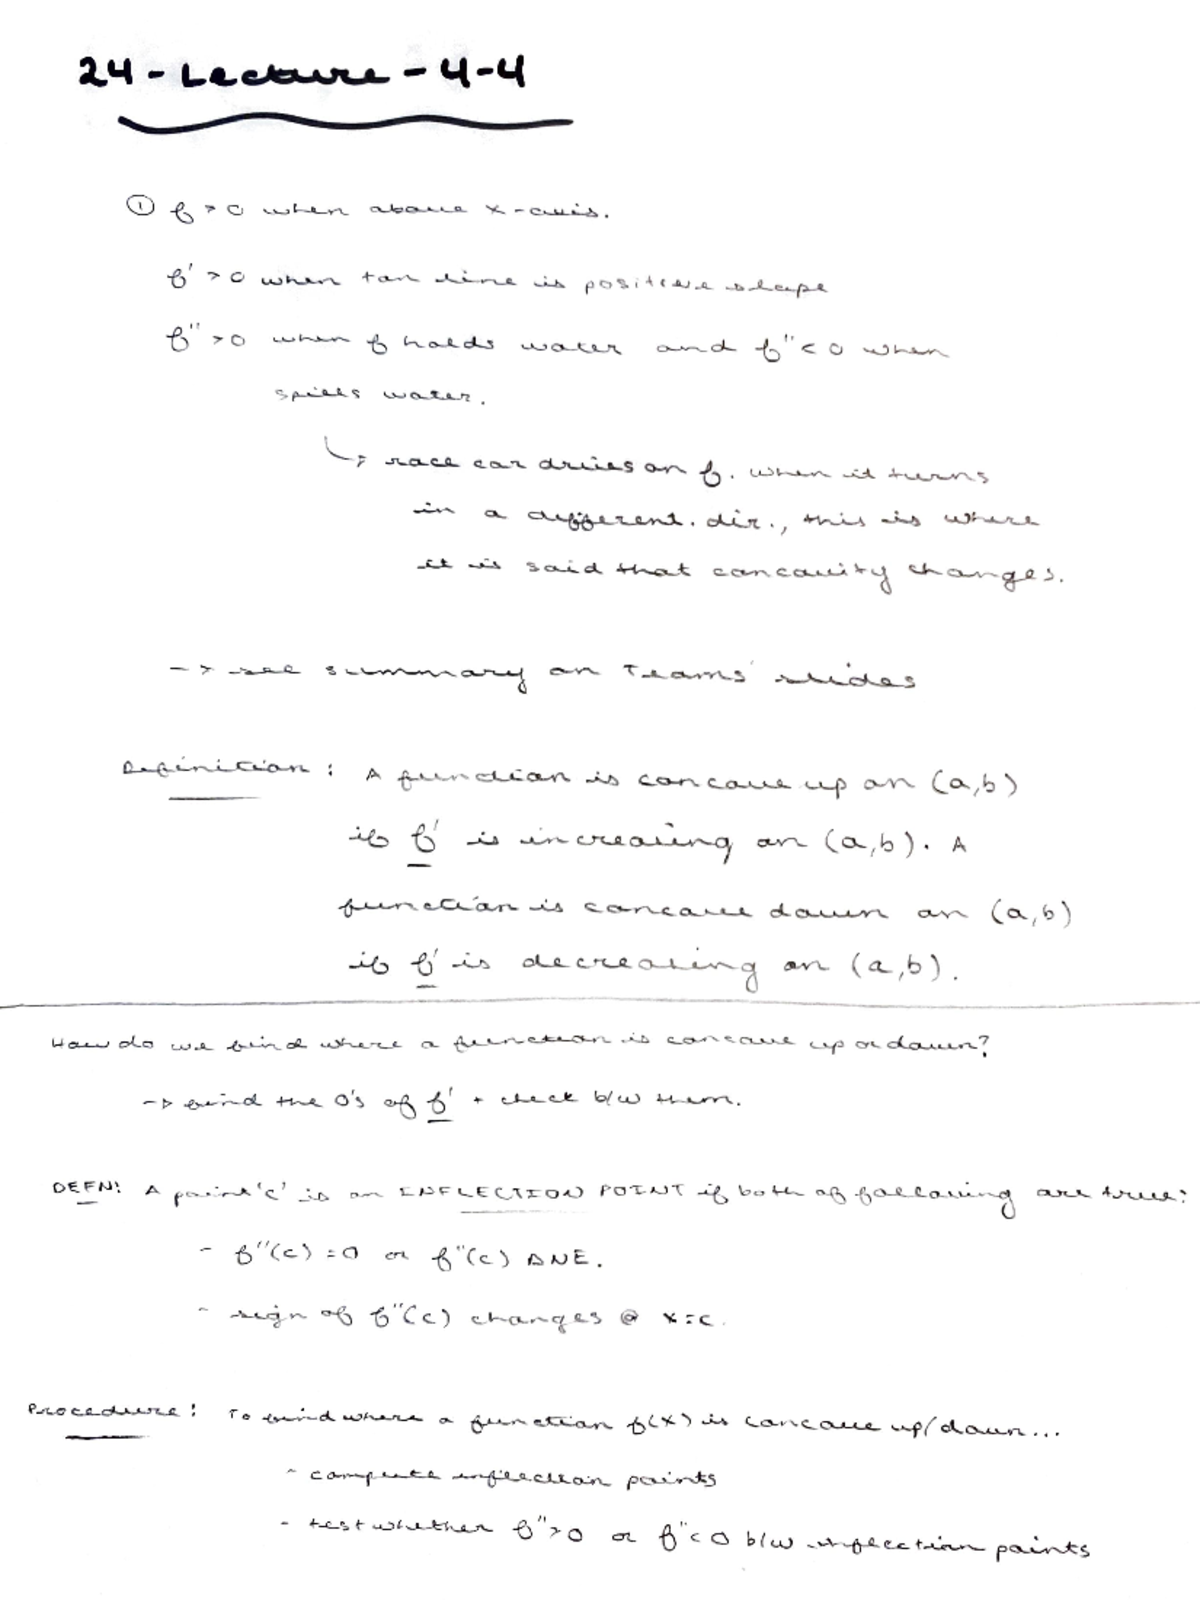 24 - Lecture - 4-4
① f > 0 when above x-axis.
f' > 0 when tan line is positive slope
f'' > 0 when f holds water and f'' < 0 when
spills water.
↳ race car drives on f. when it turns
in a different. dir., this is where
it is said that concavity changes.
-> see summary on Teams' slides
Definition: A function is concave up on (a,b)
if f' is increasing on (a,b). A
function is concave down on (a,b)
if f' is decreasing on (a,b).
How do we find where a function is concave up or down?
-> find the 0's of f' + check b/w them.
DEFN: A point 'c' is an INFLECTION POINT if both of following are true:
- f''(c) = 0 or f''(c) DNE.
- sign of f''(c) changes @ x=c.
Procedure: To find where a function f(x) is concave up/down...
- compute inflection points
- test whether f'' > 0 or f'' < 0 b/w inflection points